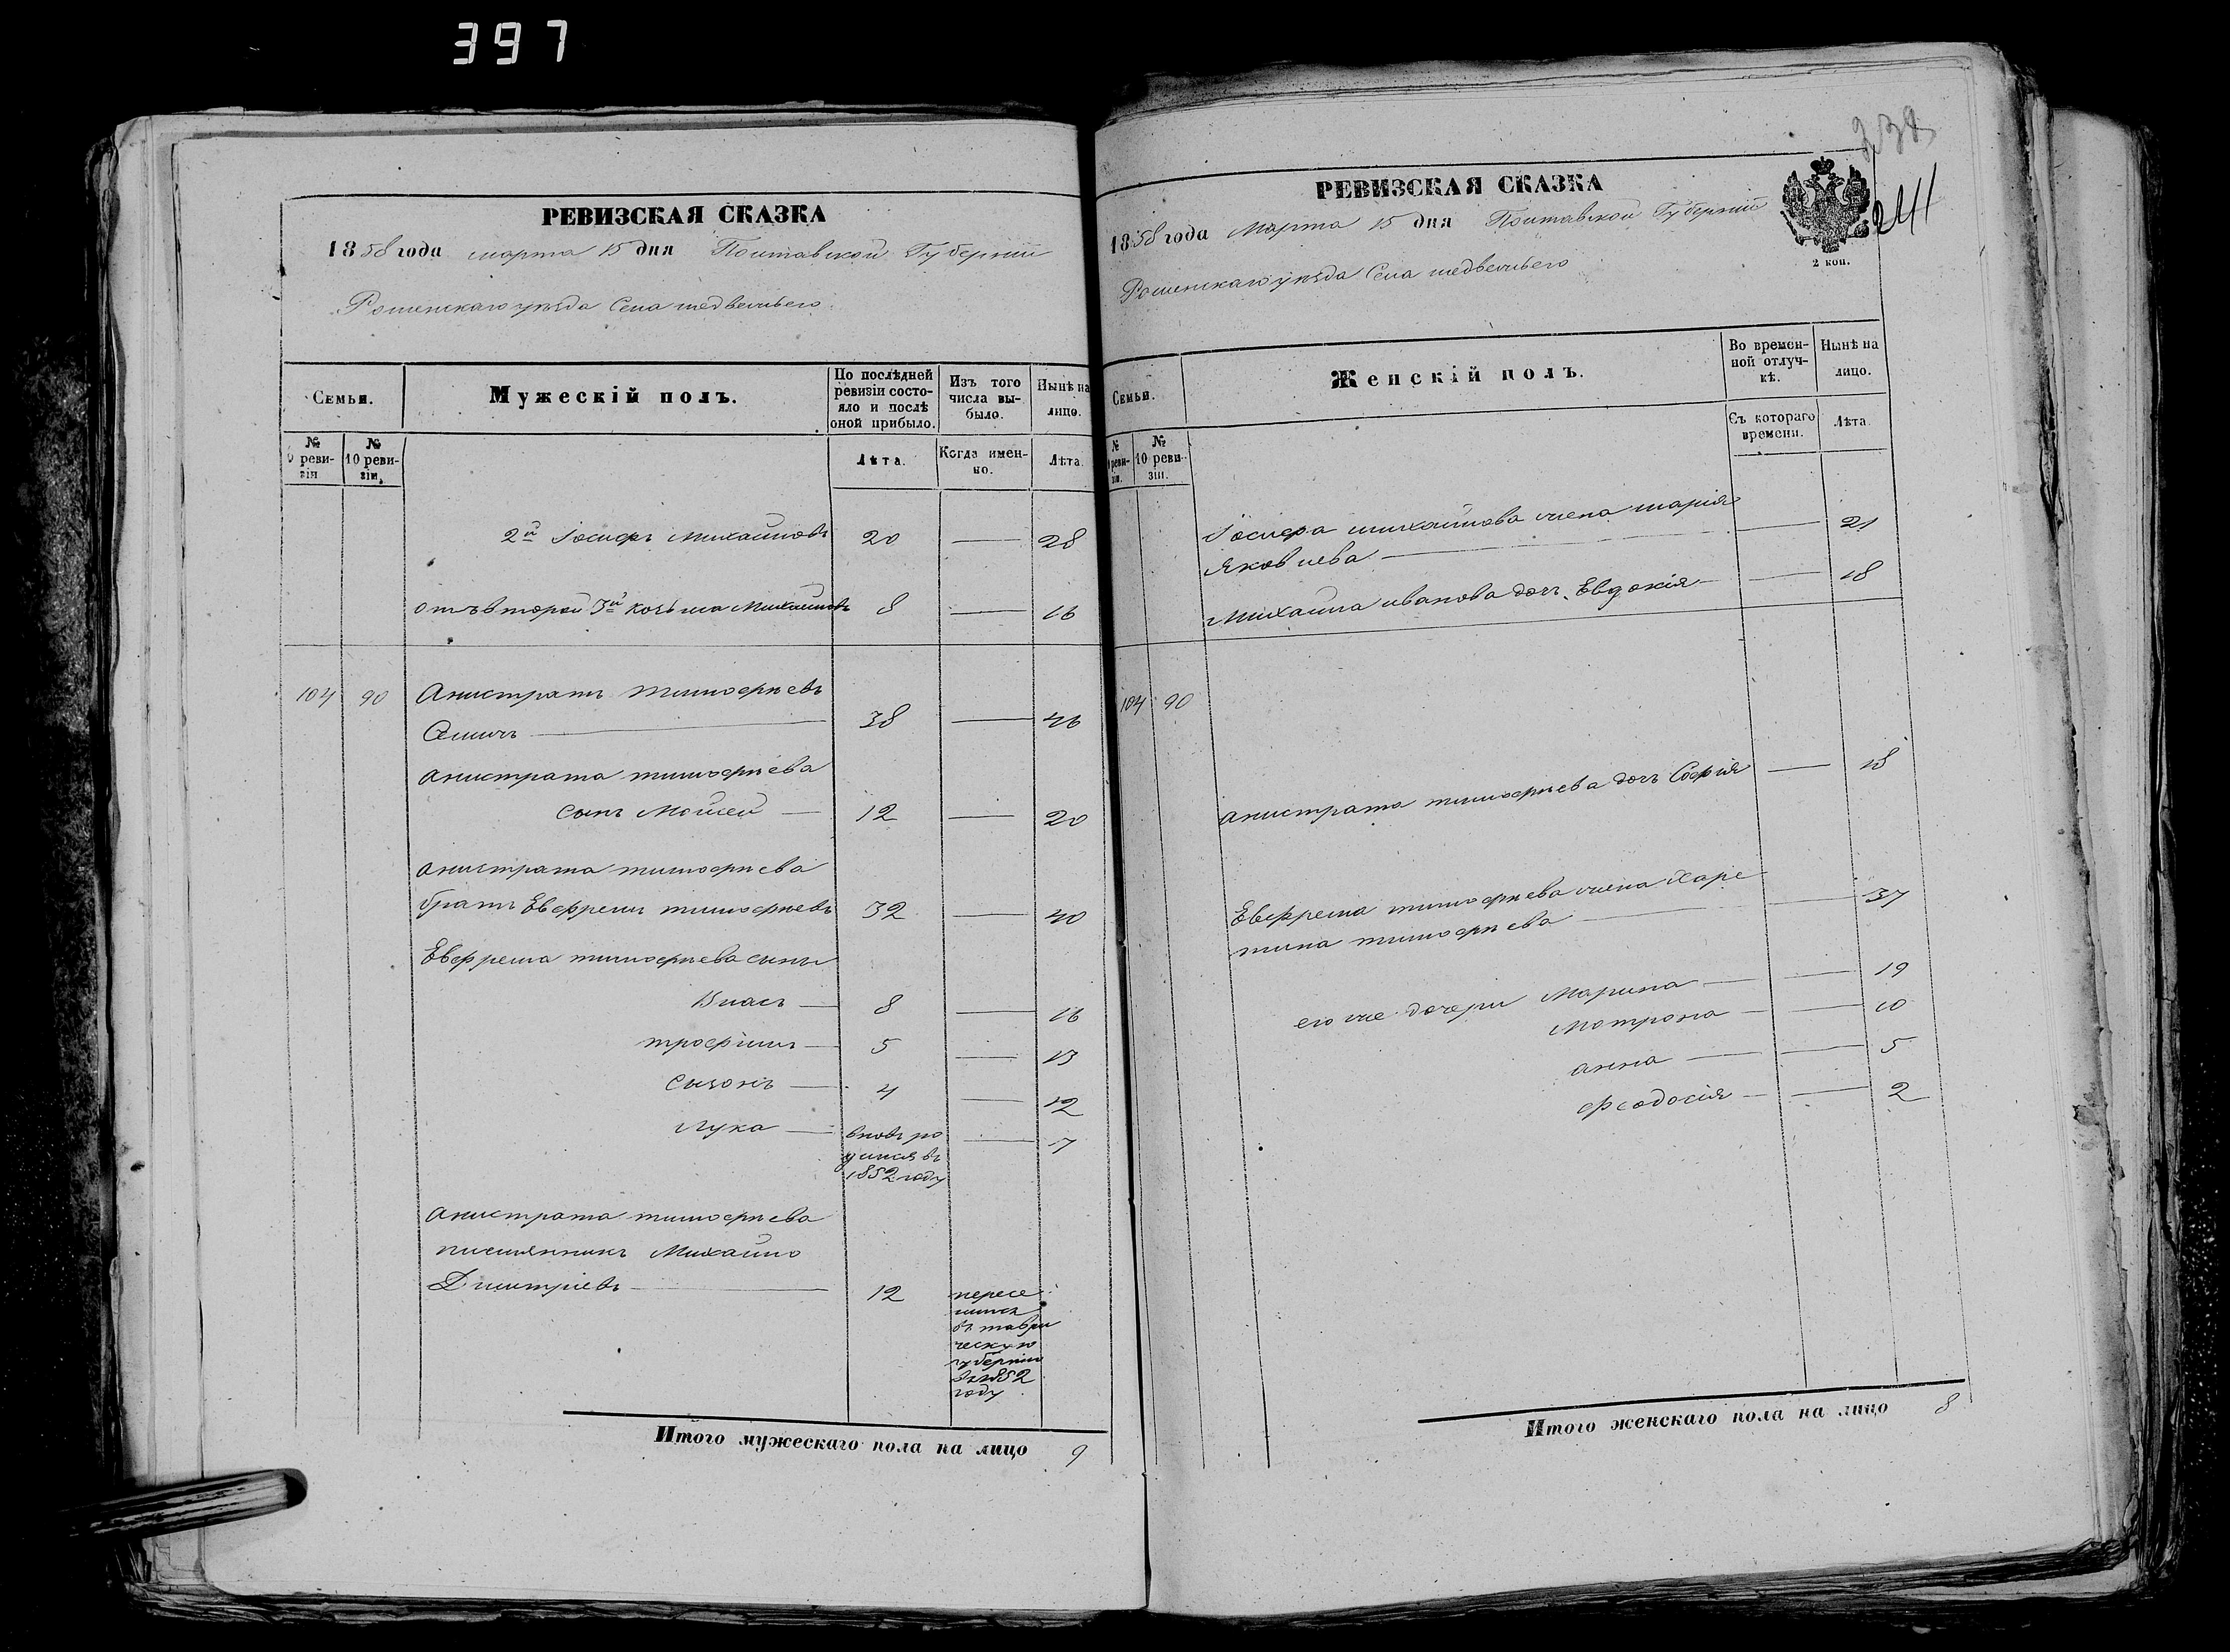 397
РЕВИЗСКАЯ СКАЗКА
1858 года марта 15 дня Полтавской Губернiи
Роменскаго уѣзда Села медвежьего
Семьи.
Мужескій полъ.
По послѣдней ревизіи состояло и послѣ оной прибыло.
Изъ того числа выбыло.
Нынѣ на лицо.
№ 9 ревизія
№ 10 ревизіи.
Лѣта.
Когда именно.
Лѣта.
2й Іосифъ Михайловъ 20 — 28
отъ второй 3й козьма Михайловъ 8 — 16
104 90 Анистратъ тимофѣевъ
38 — 46
анистрата тимофѣева
сынъ Мойсей — 12 — 20
анистрата тимофѣева
братъ Евфремъ тимофѣевъ 32 — 40
Евфрема тимофѣева сыны
Власъ — 8 — 16
трофимъ — 5 — 13
сызонъ — 4 — 12
лука — вновь ро — 7
дился въ
1852 году
анистрата тимофѣева
племянникъ Михайло
Дмитріевъ — 12 пересе
лился
въ таври
ческую
губернію
въ 1852
году
Итого мужескаго пола на лицо 9
238
241
РЕВИЗСКАЯ СКАЗКА
1858 года Марта 15 дня Полтавской Губернiи
2 коп.
Роменскаго уѣзда Села медвежьего
Семьи.
Женскій полъ.
Во временной отлучкѣ.
Нынѣ на лицо.
№ 9 ревизіи.
№ 10 ревизіи.
Съ котораго времени.
Лѣта.
Іосифа михайлова жена марія
Яковлева — — 21
Михайла иванова дочь Евдокія — — 18
104 90
анистрата тимофѣева дочь Софія — 18
Евфрема тимофѣева жена Харе
тина тимофѣева — — 37
его же дочери Марина — — 19
Мотрона — — 10
анна — — 5
феодосія — — 2
Итого женскаго пола на лицо 8